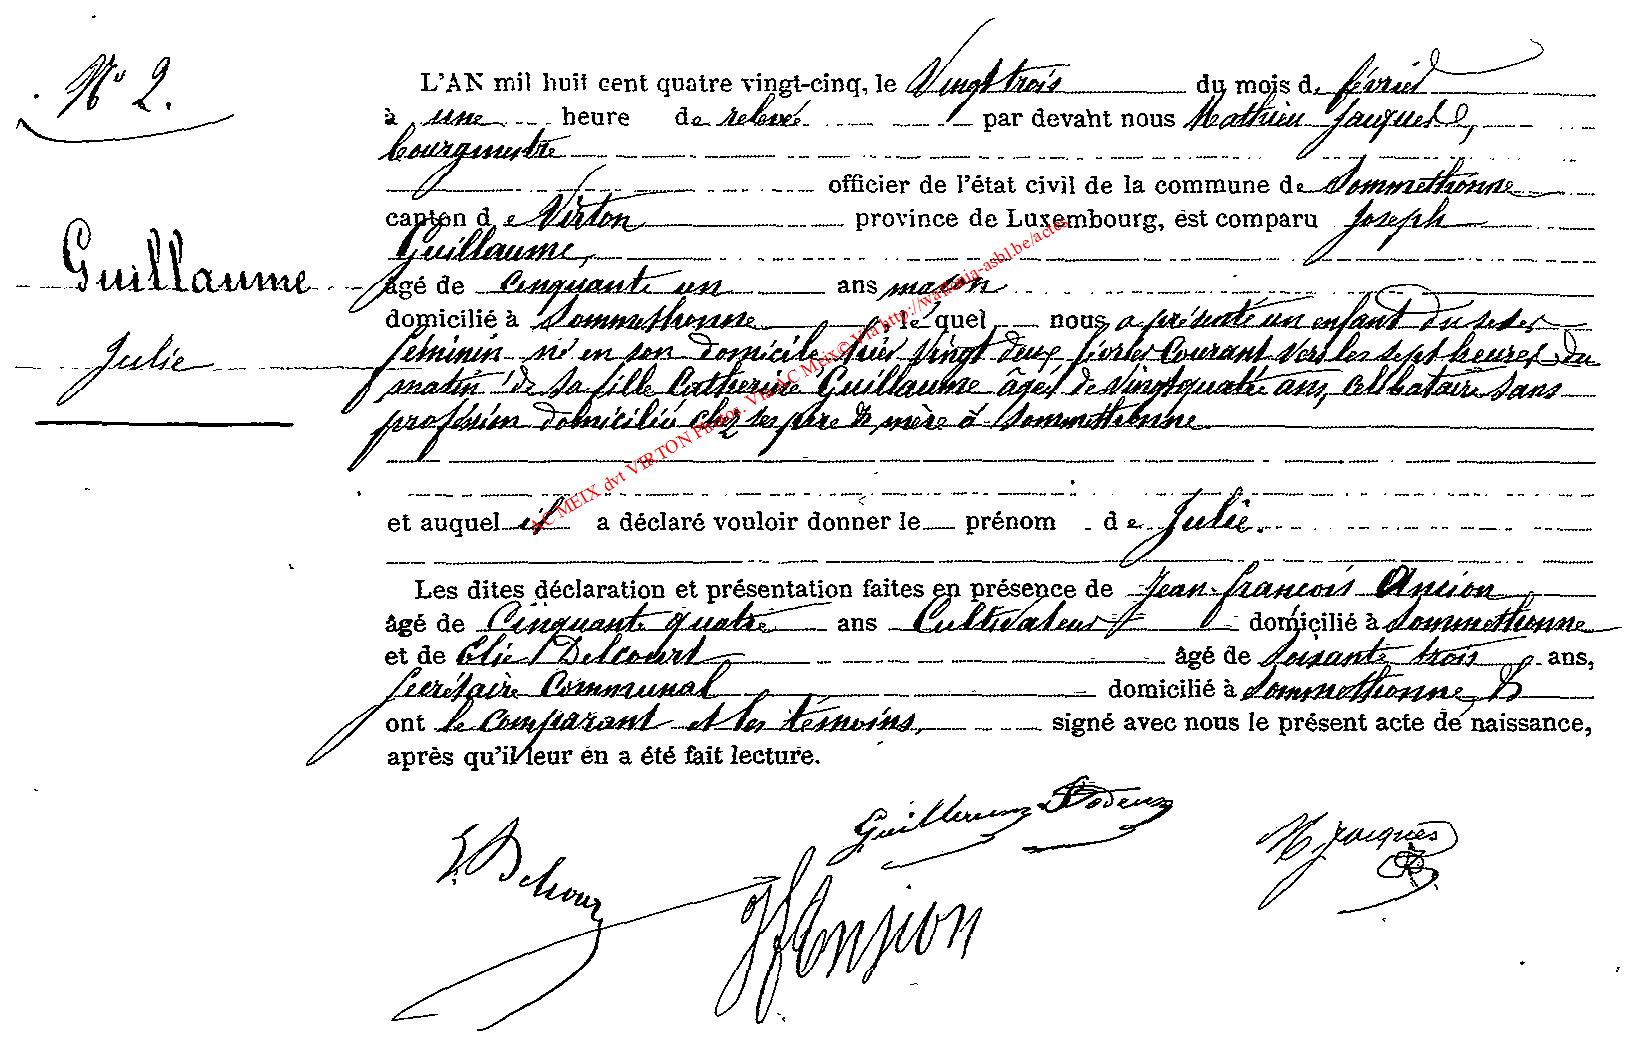 N° 2.
L'AN mil huit cent quatre vingt-cinq, le Vingt trois du mois de février
à une heure de relevée par devant nous Mathieu Jacques,
bourgmestre
officier de l'état civil de la commune de Sommethonne
canton de Virton province de Luxembourg, est comparu Joseph
Guillaume,
Guillaume
âgé de cinquante un ans maçon
domicilié à Sommethonne, le quel nous a présenté un enfant du sexe
Julie
féminin né en son domicile hier Vingt deux février Courant vers les sept heures du
matin de sa fille Catherine Guillaume âgée de Vingt quatre ans, célibataire sans
profession domiciliée chez ses père & mère à Sommethonne
et auquel il a déclaré vouloir donner le prénom de Julie.
Les dites déclaration et présentation faites en présence de Jean-françois Ancion
âgé de Cinquante quatre ans Cultivateur domicilié à Sommethonne
et de Elie Delcourt âgé de Soixante trois ans,
secrétaire Communal domicilié à Sommethonne &
ont le comparant et les témoins, signé avec nous le présent acte de naissance,
après qu'il leur en a été fait lecture.
Guillaume
M. Jacques
E. Delcour
JfAnsion
AC MEIX dvt VIRTON Photos. Via AC Meix© Via http://wallonia-asbl.be/actes